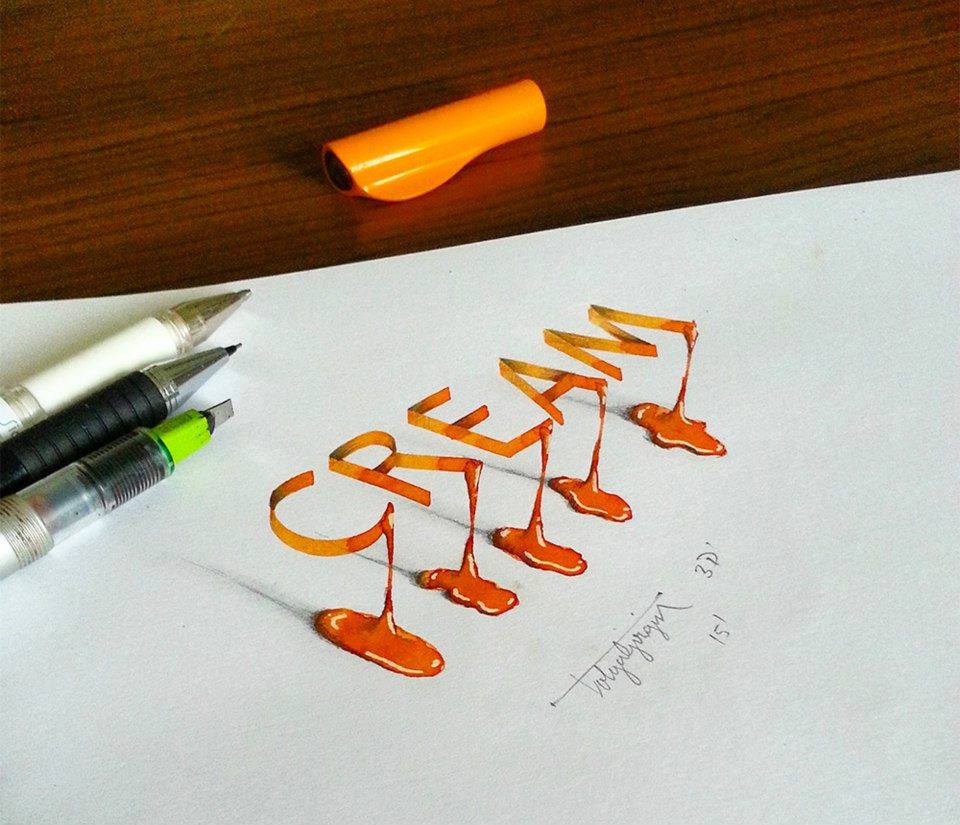 CREAM
Tolgagirgin
3D'
15'